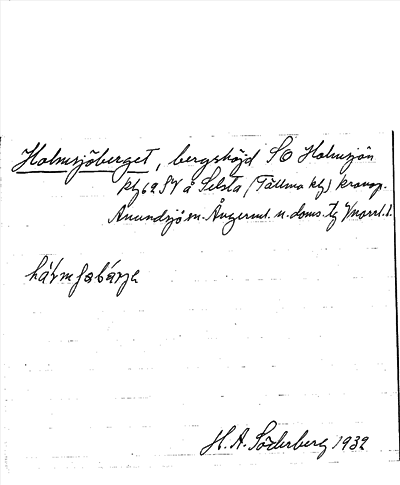 Holmsjöberget, bergshöjd SO Holmsjön
på Selsta (Tällma krono.
Anundsjö sn. Ångerml. n. doms. tg Vnorrl. l.
hármʃabärje
H. A. Söderberg 1932